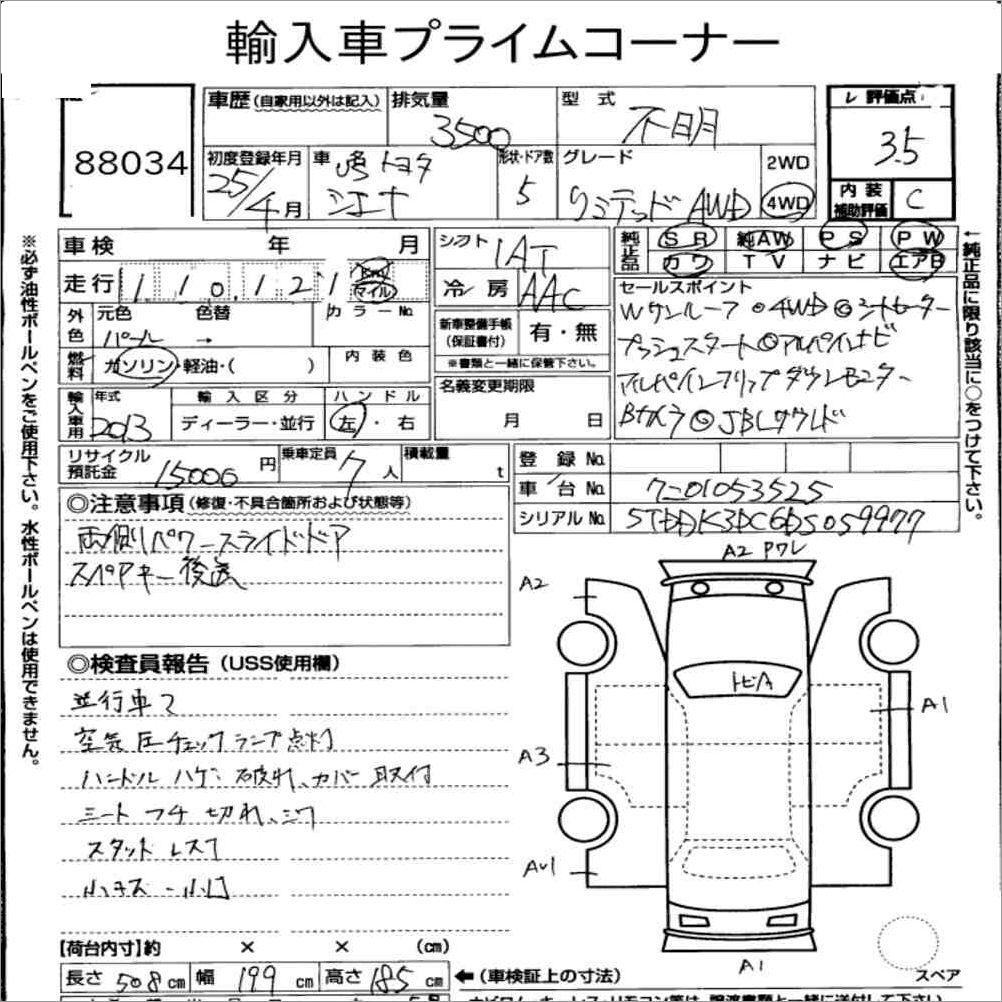 輸入車プライムコーナー
88034
車歴(自家用以外は記入)
排気量
3500
型 式
不明
レ 評価点
3.5
初度登録年月
25/4月
車名 トヨタ
シエナ
形状・ドア数
5
グレード
リミテッド AWD
2WD
4WD
内装補助評価
C
車検 年 月
シフト
IAT
純正品
SR 純AW PS PW
カワ TV ナビ エアB
走行 110,121 km マイル
冷房
AAC
外色 元色 色替 カラーNo.
パール →
燃料 ガソリン・軽油・( )
内装色
新車整備手帳(保証書付)
有・無
※書類と一緒に保管下さい。
名義変更期限
月 日
セールスポイント
Wサンルーフ ◎4WD◎シートヒーター
プッシュスタート◎アルパインナビ
アルパインフリップダウンモニター
Bカメラ◎JBLサウンド
輸入車用 年式
2013
輸入区分
ディーラー・並行
ハンドル
左・右
リサイクル預託金
15000円
乗車定員
7人
積載量
t
登録No.
車台No.
シリアルNo.
5TDDK3DC6DS059977
◎注意事項(修復・不具合箇所および状態等)
両側パワースライドドア
スペアキー後送
◎検査員報告(USS使用欄)
空気圧チェックランプ点灯
ハンドル ハゲ、破れ、カバー取付
シート フチ 切れ、シワ
スタッドレス
小キズ・小凹
A2 Pワレ
A2
トビA
A1
A3
A1
【荷台内寸】約 × × (cm)
長さ 508 cm 幅 199 cm 高さ 185 cm
←(車検証上の寸法)
スペア
※必ず油性ボールペンをご使用下さい。水性ボールペンは使用できません。
←純正品に限り該当に○をつけて下さい。